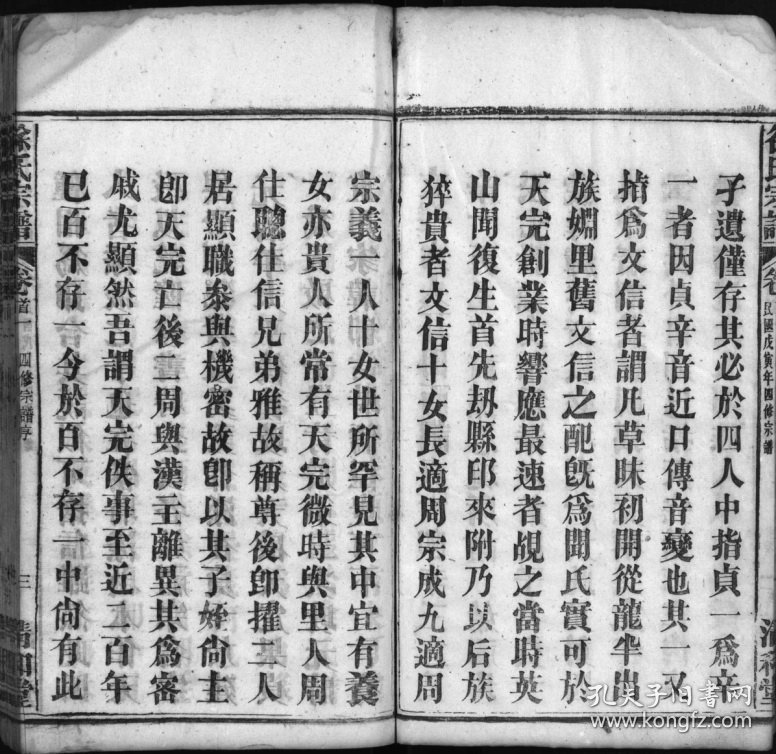 孑遺僅存其必於四人中指貞一爲辛
一者因貞辛音近口傳音變也其一又
指爲文信者謂凡草昧初開從龍半出
族婣里舊文信之配旣爲聞氏實可於
天完創業時響應最速者覘之當時英
山聞復生首先刼縣印來附乃以后族
猝貴者文信十女長適周宗成九適周
民國戊寅年四修宗譜
宗義一人十女世所罕見其中宜有養
女亦貴人所常有天完微時與里人周
仕聰仕信兄弟雅故稱尊後卽擢二人
居顯職叅與機密故卽以其子姪尙主
卽天完亡後二周與漢主離異其爲密
戚尤顯然吾謂天完佚事至近二百年
已百不存一今於百不存一中尙有此
徐氏宗譜 卷首一 四修宗譜序 三 清和堂
孔夫子旧书网
www.kongfz.com